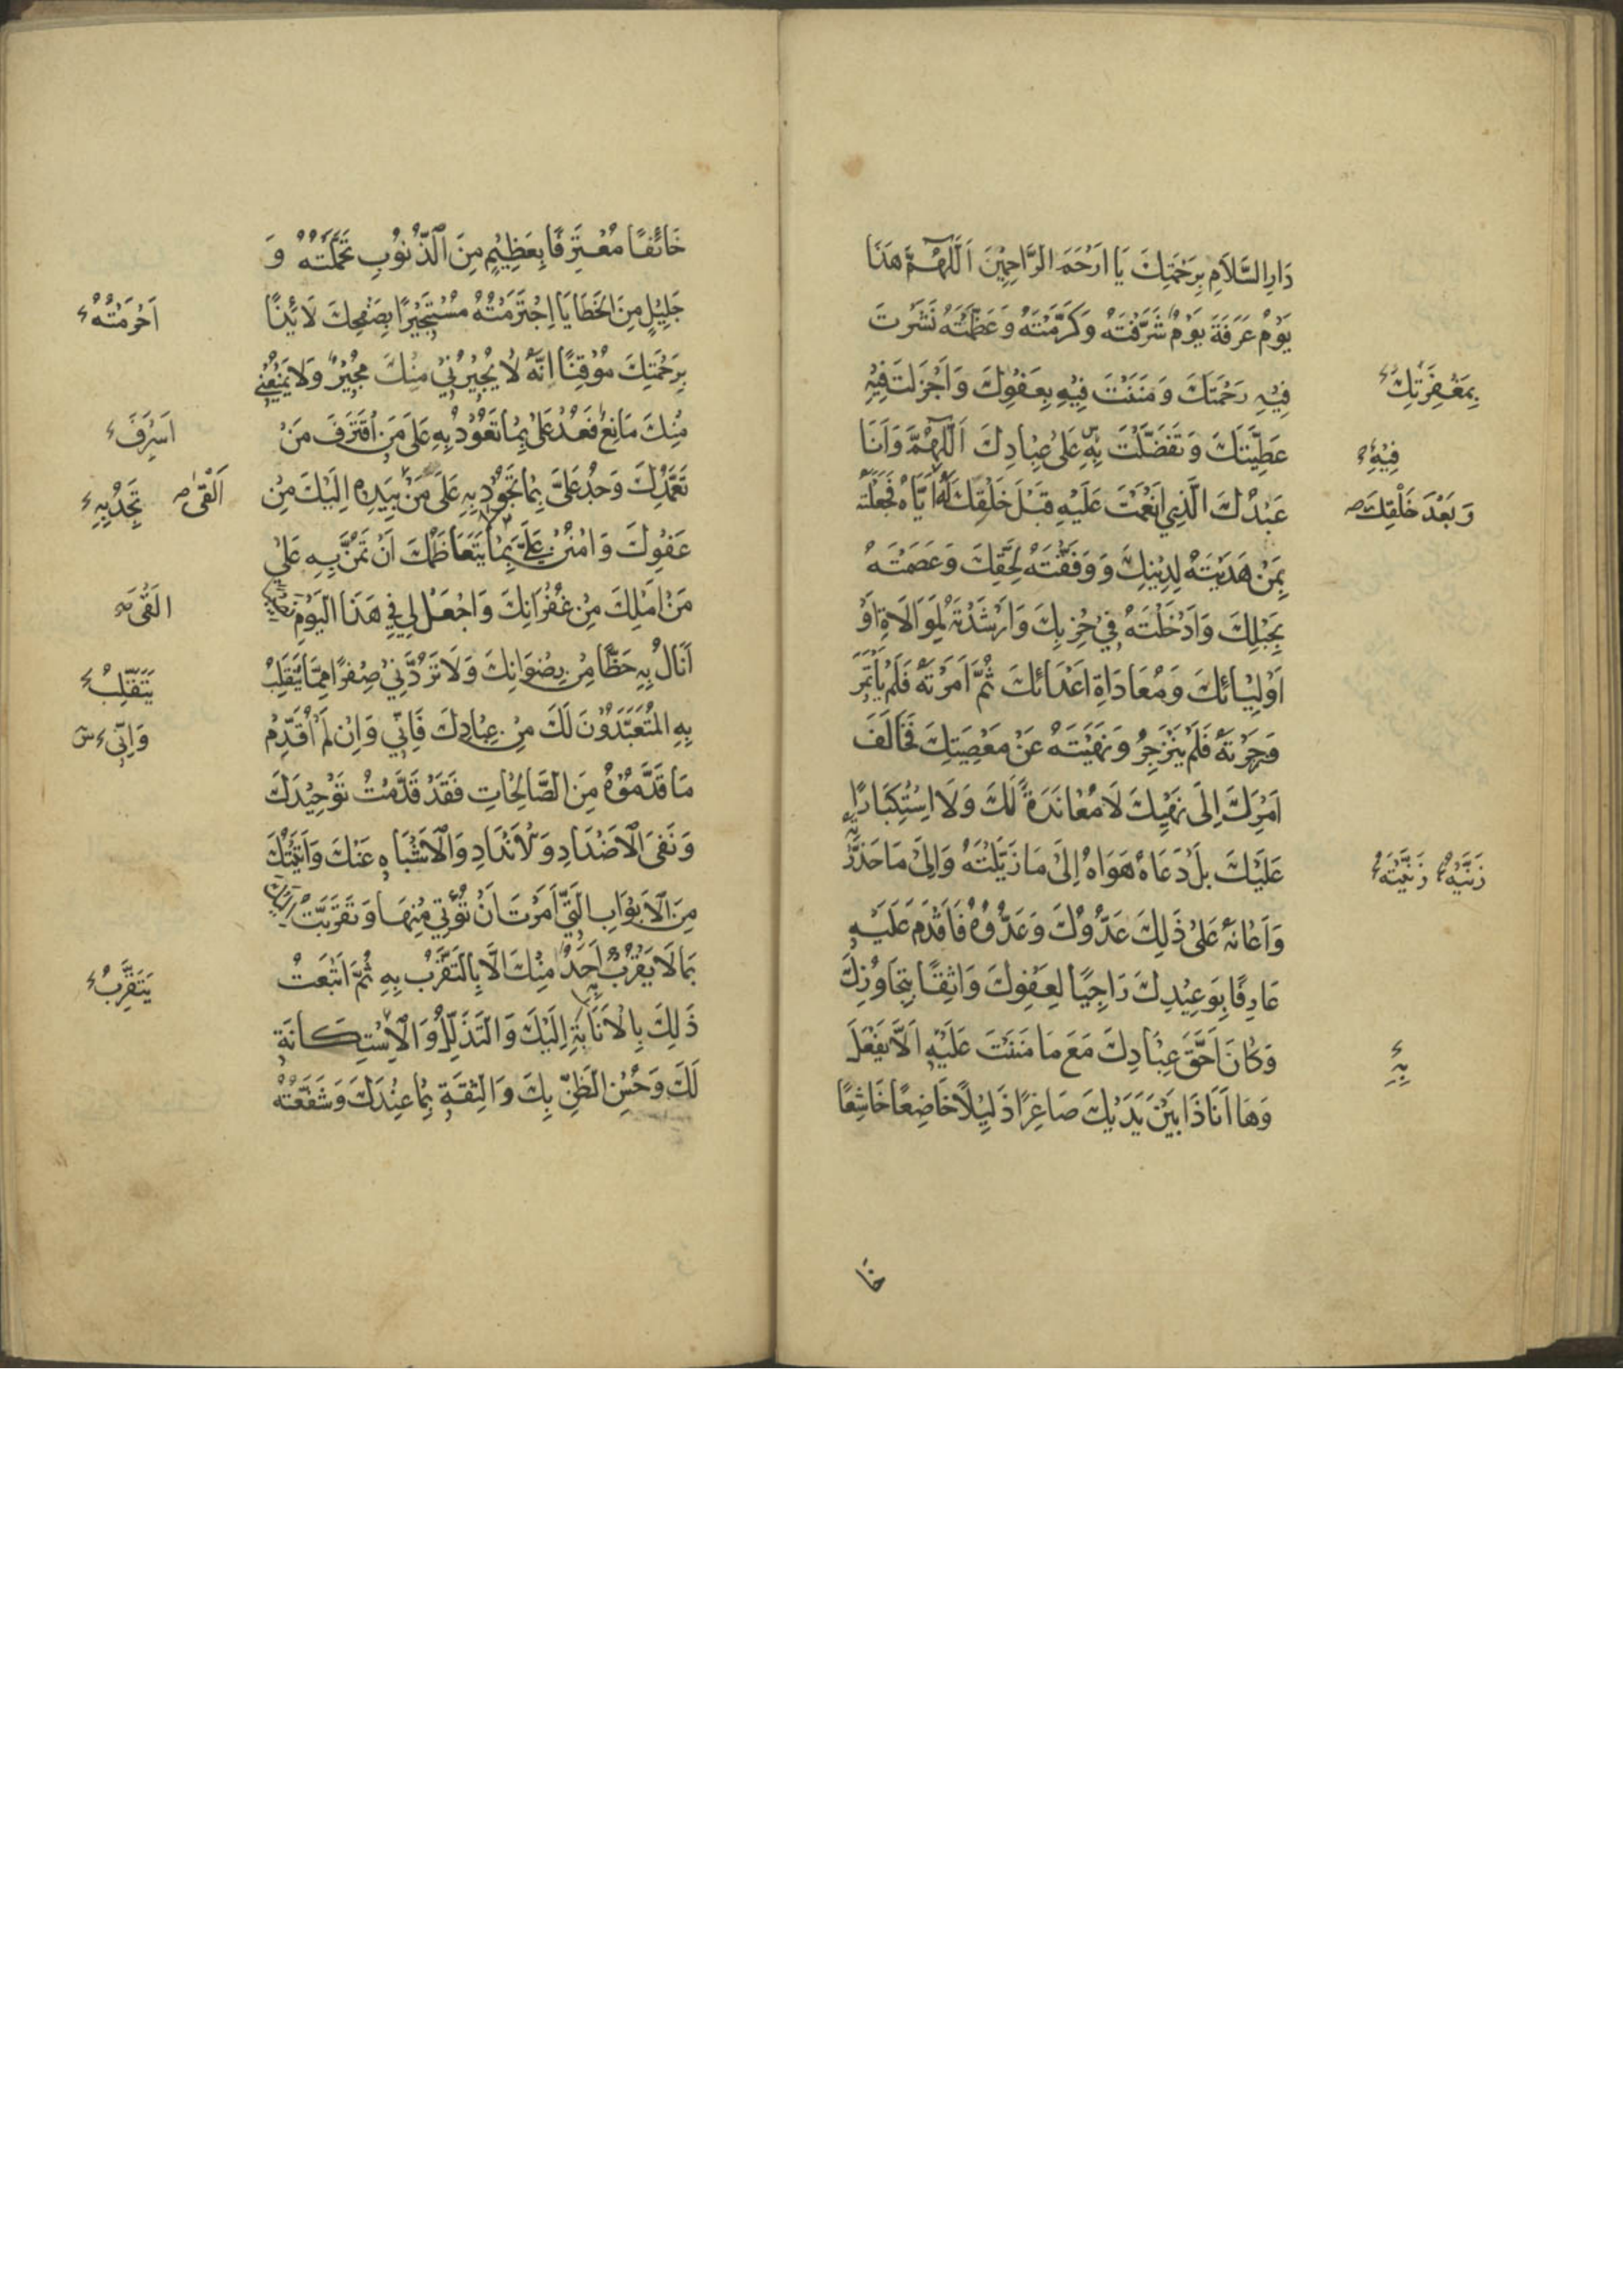 دَارِ السَّلَامِ بِرَحْمَتِكَ يَا اَرْحَمَ الرَّاحِمِيْنَ اَللّٰهُمَّ هَذَا
يَوْمُ عَرَفَةَ يَوْمٌ شَرَّفْتَهُ وَكَرَّمْتَهُ وَعَظَّمْتَهُ نَشَرْتَ
فِيْهِ رَحْمَتَكَ وَمَنَنْتَ فِيْهِ بِعَفْوِكَ وَاَجْزَلْتَ فِيْهِ
بِمَغْفِرَتِكَ
عَطِيَّتَكَ وَتَفَضَّلْتَ بِهِ عَلَى عِبَادِكَ اَللّٰهُمَّ وَاَنَا
فِيْهِ
عَبْدُكَ الَّذِي اَنْعَمْتَ عَلَيْهِ قَبْلَ خَلْقِكَ لَهُ اِيَّاهُ فَجَعَلْتَهُ
وَبَعْدَ خَلْقِكَ
مِمَّنْ هَدَيْتَهُ لِدِيْنِكَ وَوَفَّقْتَهُ لِحَقِّكَ وَعَصَمْتَهُ
بِحَبْلِكَ وَاَدْخَلْتَهُ فِي حِزْبِكَ وَاَرْشَدْتَهُ لِمُوَالَاةِ اَوْ
اَوْلِيَائِكَ وَمُعَادَاةِ اَعْدَائِكَ ثُمَّ اَمَرْتَهُ فَلَمْ يَأْتَمِرْ
وَزَجَرْتَهُ فَلَمْ يَنْزَجِرْ وَنَهَيْتَهُ عَنْ مَعْصِيَتِكَ فَخَالَفَ
اَمْرَكَ اِلَى نَهْيِكَ لَا مُعَانَدَةً لَكَ وَلَا اسْتِكْبَارًا
عَلَيْكَ بَلْ دَعَاهُ هَوَاهُ اِلَى مَا زَيَّلْتَهُ وَاِلَى مَا حَذَّرْتَهُ
وَاَعَانَهُ عَلَى ذَلِكَ عَدُوُّكَ وَعَدُوُّهُ فَاَقْدَمَ عَلَيْهِ
عَارِفًا بِوَعِيْدِكَ رَاجِيًا لِعَفْوِكَ وَاثِقًا بِتَجَاوُزِكَ
وَكَانَ اَحَقَّ عِبَادِكَ مَعَ مَا مَنَنْتَ عَلَيْهِ اَلَّا يَفْعَلَ
بِهِ
وَهَا اَنَا ذَا بَيْنَ يَدَيْكَ صَاغِرًا ذَلِيْلًا خَاضِعًا خَاشِعًا
خَا
خَائِفًا مُعْتَرِفًا بِعَظِيْمٍ مِنَ الذُّنُوْبِ تَحَمَّلْتُهُ وَ
جَلِيْلٍ مِنَ الْخَطَايَا اِجْتَرَمْتُهُ مُسْتَجِيْرًا بِصَفْحِكَ لَائِذًا
بِرَحْمَتِكَ مُوْقِنًا اِنَّهُ لَا يُجِيْرُنِي مِنْكَ مُجِيْرٌ وَلَا يَمْنَعُنِي
مِنْكَ مَانِعٌ فَعُدْ عَلَيَّ بِمَا تَعُوْدُ بِهِ عَلَى مَنِ اقْتَرَفَ مَنْ
اَسْرَفَ
تَغَمُّدِكَ وَجُدْ عَلَيَّ بِمَا تَجُوْدُ بِهِ عَلَى مَنْ بِيَدِهِ اِلَيْكَ مِنْ
اَلْقَى
تَجُدْ بِهِ
عَفْوِكَ وَامْنُنْ عَلَيَّ بِمَا يَتَعَاظَمُكَ اَنْ تَمُنَّ بِهِ عَلَى
مَنْ اَمَّلَكَ مِنْ غُفْرَانِكَ وَاجْعَلْ لِي فِي هَذَا الْيَوْمِ نَصِيْبًا
اَلْقَى
اَنَالُ بِهِ حَظًّا مِنْ رِضْوَانِكَ وَلَا تَرُدَّنِي صِفْرًا مِمَّا يَنْقَلِبُ
يَتَقَلَّبُ
بِهِ الْمُتَعَبِّدُوْنَ لَكَ مِنْ عِبَادِكَ فَاِنِّي وَاِنْ لَمْ اُقَدِّمْ
وَاِنِّي
مَا قَدَّمُوْهُ مِنَ الصَّالِحَاتِ فَقَدْ قَدَّمْتُ تَوْحِيْدَكَ
وَنَفْيَ الْاَضْدَادِ وَالْاَنْدَادِ وَالْاَشْبَاهِ عَنْكَ وَاَتَيْتُكَ
مِنَ الْاَبْوَابِ الَّتِي اَمَرْتَ اَنْ تُؤْتَى مِنْهَا وَتَقَرَّبْتُ اِلَيْكَ
بِمَا لَا يَقْرُبُ اَحَدٌ مِنْكَ اِلَّا بِالتَّقَرُّبِ بِهِ ثُمَّ اَتْبَعْتُ
يَتَقَرَّبُ
ذَلِكَ بِالْاِنَابَةِ اِلَيْكَ وَالتَّذَلُّلِ وَالْاِسْتِكَانَةِ
لَكَ وَحُسْنِ الظَّنِّ بِكَ وَالثِّقَةِ بِمَا عِنْدَكَ وَشَفَعْتُهُ